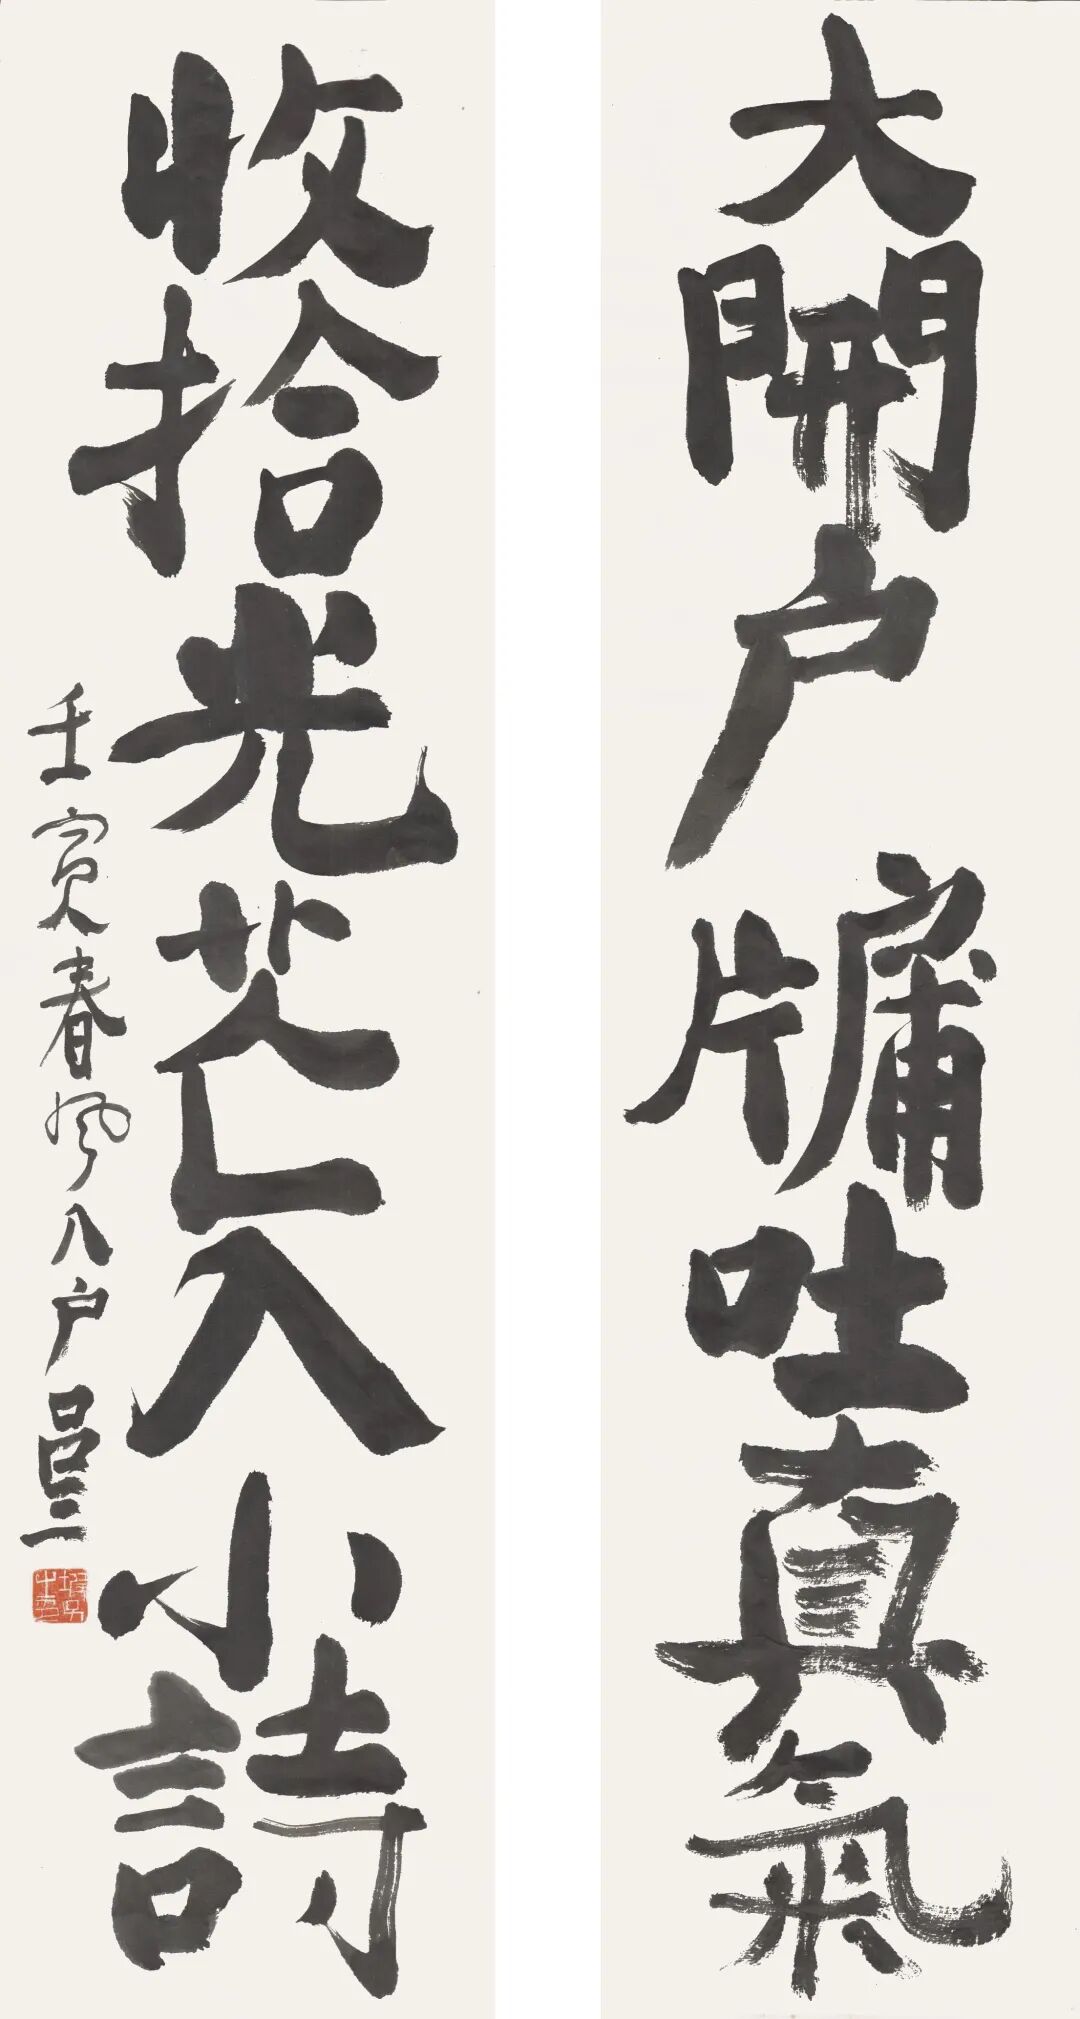 大開户牗吐真氣
收拾光芒入小詩
壬寅春風入户 呂三